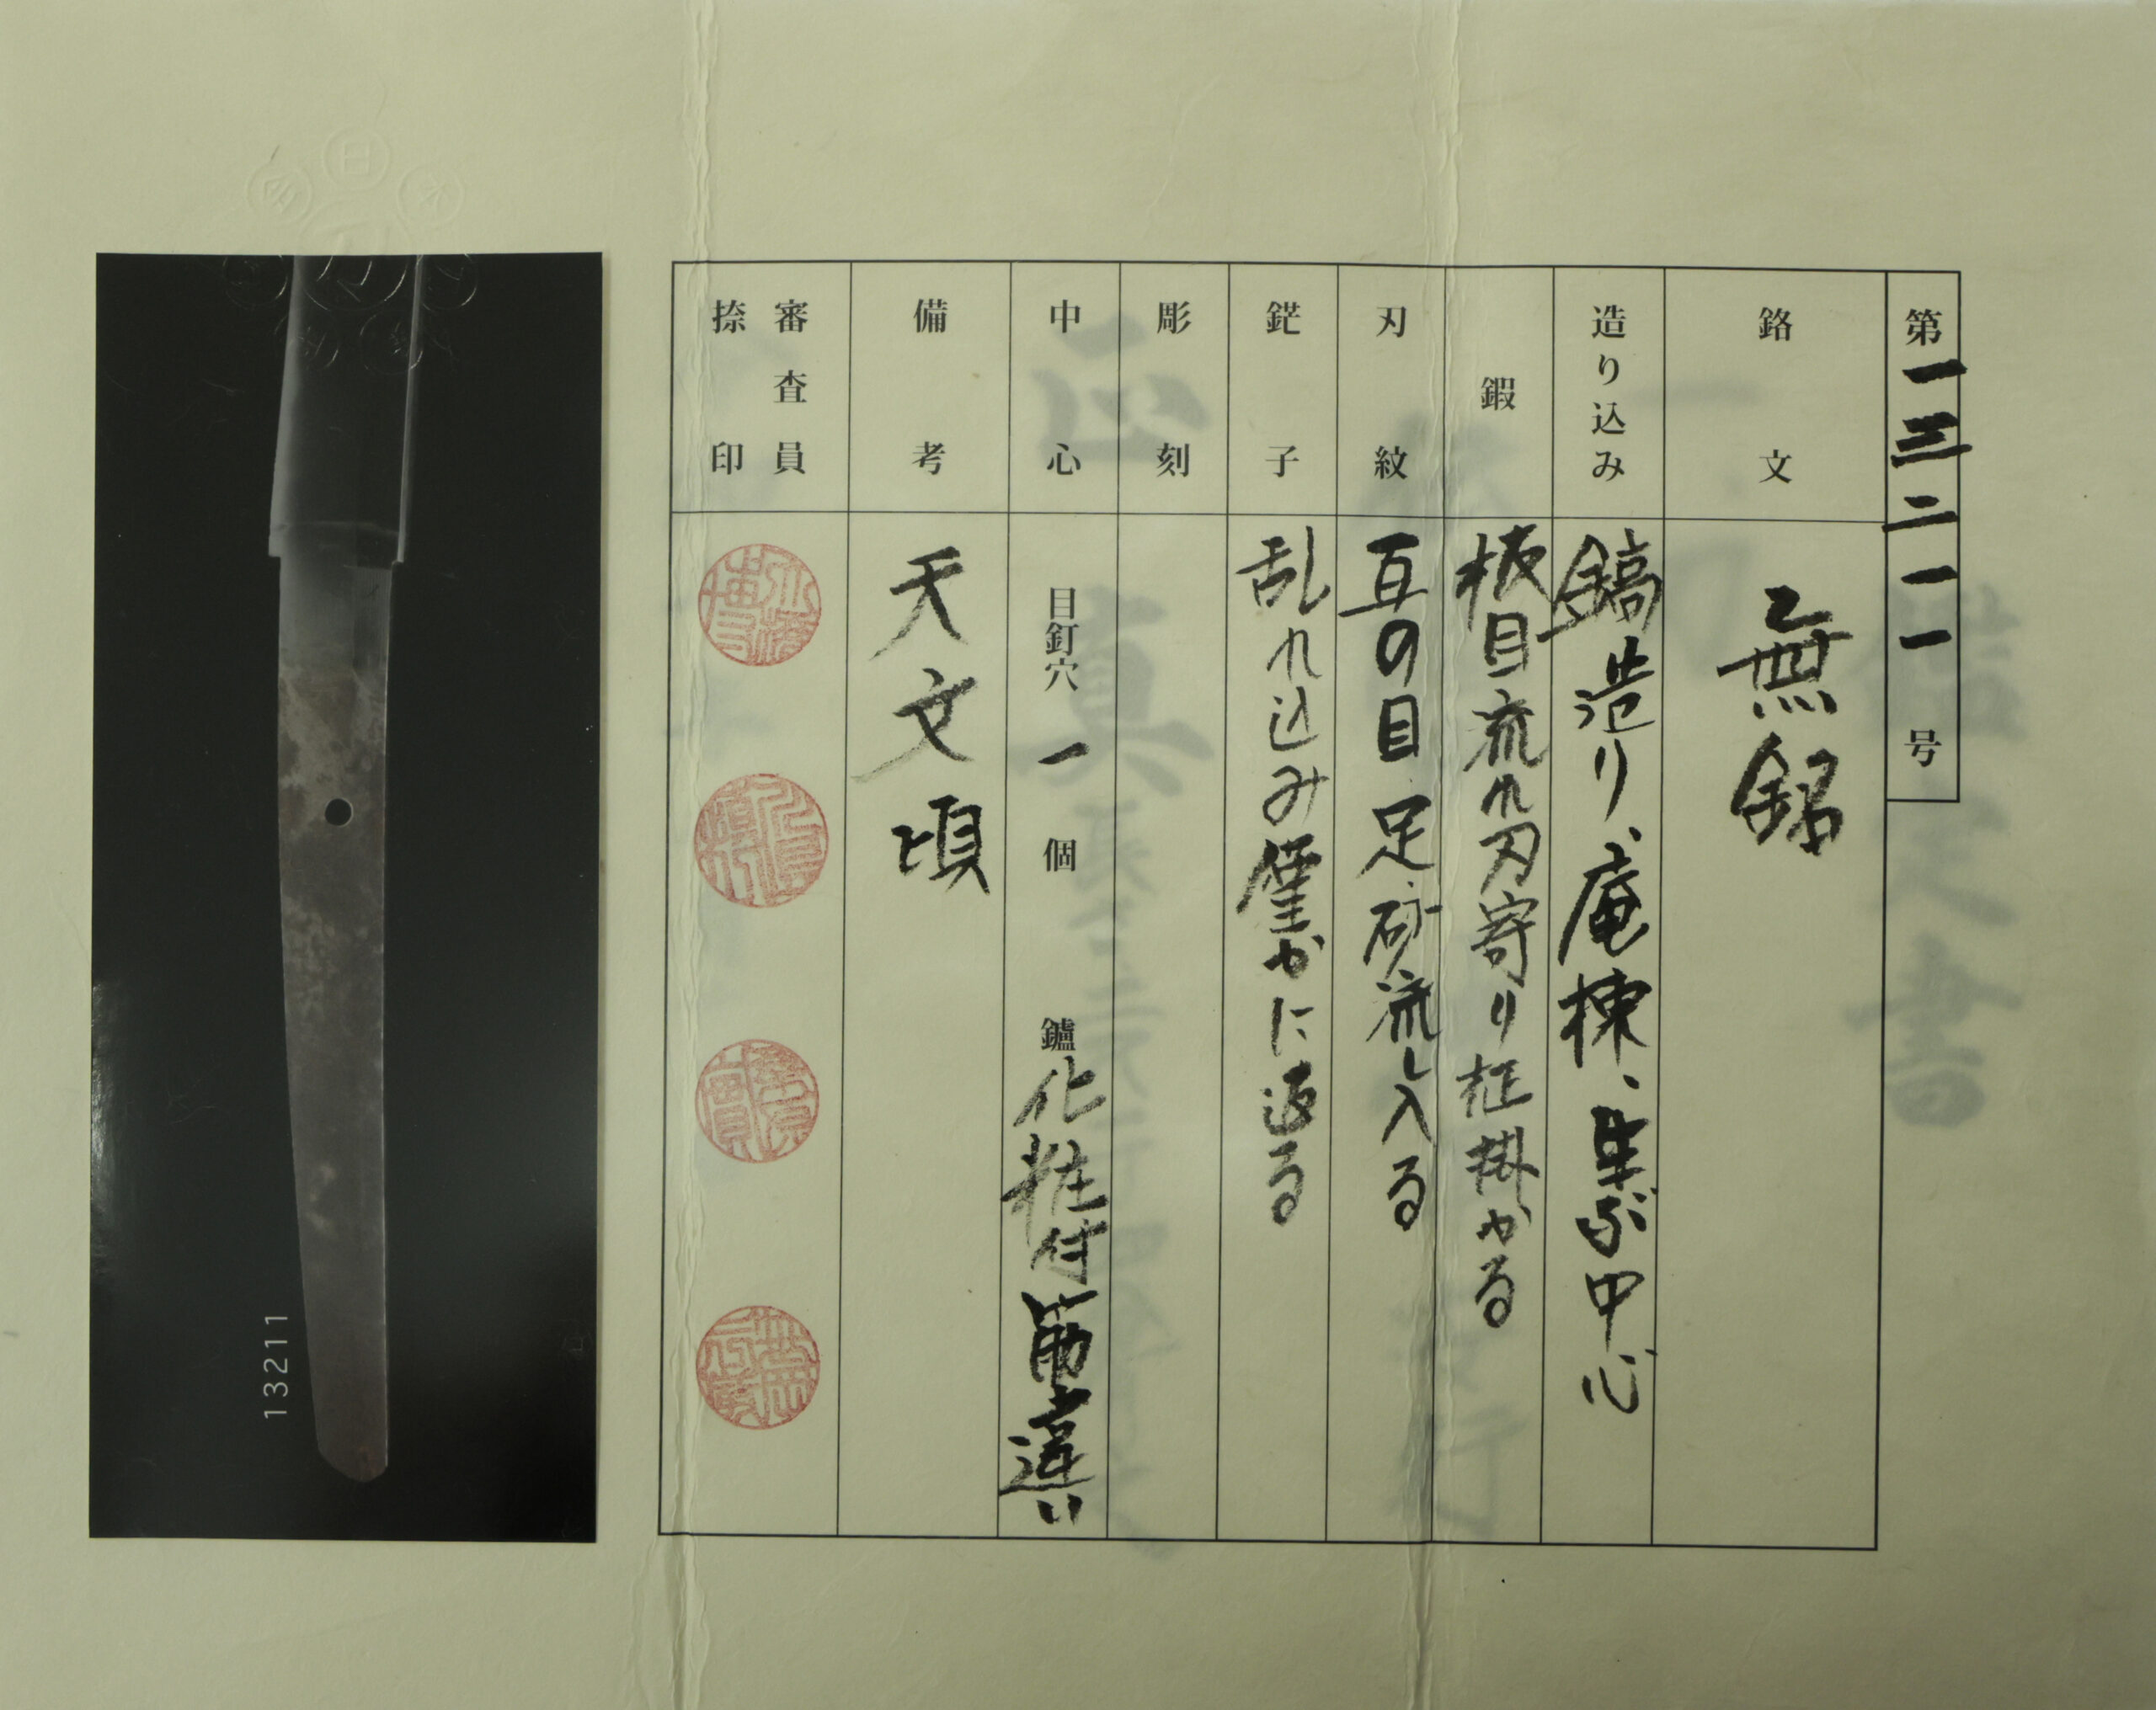 第一三二一一号
銘文
無銘
造り込み
鎬造り、庵棟、生ぶ中心
鍜
板目流れ刃寄り柾掛かる
刃紋
互の目足、砂流し入る
鋩子
乱れ込み僅かに返る
彫刻
中心
目釘穴 一 個
鑢 化粧付筋違い
備考
天文頃
審査員
捺印
13211